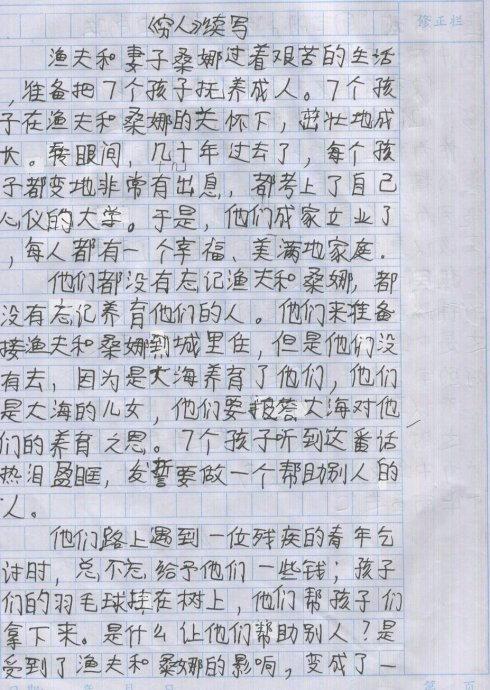 《穷人》续写
修正栏
渔夫和妻子桑娜过着艰苦的生活
，准备把7个孩子抚养成人。7个孩
子在渔夫和桑娜的关怀下，茁壮地成
长。转眼间，几十年过去了，每个孩
子都变地非常有出息，都考上了自己
心仪的大学。于是，他们成家立业了
，每人都有一个幸福、美满地家庭.
他们都没有忘记渔夫和桑娜，都
没有忘记养育他们的人。他们来准备
接渔夫和桑娜到城里住，但是他们没
有去，因为是大海养育了他们，他们
是大海的儿女，他们要报答大海对他
们的养育之恩。7个孩子听到这番话
热泪盈眶，发誓要做一个帮助别人的
人。
他们路上遇到一位残疾的青年乞
讨时，总不忘给予他们一些钱；孩子
们的羽毛球挂在树上，他们帮孩子们
拿下来。是什么让他们帮助别人？是
受到了渔夫和桑娜的影响，变成了一